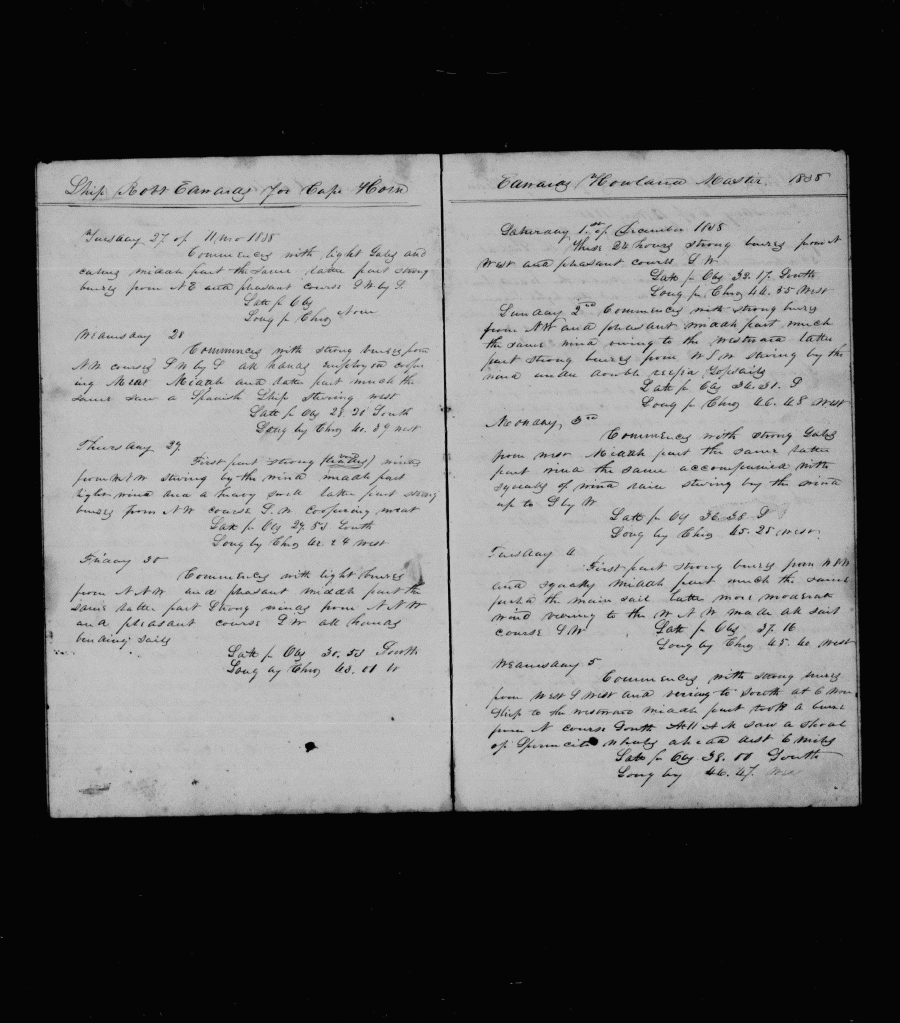 Ship Robt Edwards for Cape Horn
Tuesday 27 of 11 mo 1838
Commences with light Gales and
calms middle part the same latter part strong
breezes from NE and pleasant course S W by S
Latt pr Obs
Long pr Chro None
Wednesday 28
Commences with strong breezes from
N.W. course S W by S all hands employed cooper
ing Meat Middle and latter part much the
same saw a Spanish Ship stering west
Latt pr Obs 28.20 South
Long by Chro 41.39 west
Thursday 29
First part strong winds
from W S W stering by the wind middle part
light wind and a heavy swell latter part strong
breezes from N W course S.W. coopering meat
Latt pr Obs 29.53 South
Long by Chro 42.24 west
Friday 30
Commences with light breezes
from N N W and pleasant middle part the
same latter part Strong winds from N N W
and pleasant course S W all hands
bending sails
Latt pr Obs 30.53 South
Long by Chro 43.00 W
Edwards Howland Master 1838
Saturday 1st of December 1838
These 24 hours strong breezes from N
West and pleasant course S W
Latt pr Obs 32.17 South
Long pr Chro 44.35 West
Sunday 2nd Commences with strong breezes
from N W and pleasant middle part much
the same wind vering to the westward latter
part strong breezes from W S W stering by the
wind under double reefed Topsails
Latt pr Obs 34.31 S
Long pr Chro 46.48 West
Monday 3rd
Commences with strong Gales
from WSW Middle part the same latter
part wind the same accompanied with
squalls of wind stering by the wind
up to S by W
Latt pr Obs 36.38 S
Long by Chro 45.25 west
Tuesday 4
First part strong breezes from W S W
and squally middle part much the same
furld the main sail latter more moderate
wind veering to the W N W made all sail
course S W Latt pr Obs 37.16
Long by Chro 45.40 West
Wednesday 5
Commences with strong breezes
from West S West and vering to South at 6 wore
Ship to the westward middle part took a breeze
from N course South At 11 AM saw a shoal
of whales ahead dist 6 miles
Latt pr Obs 38.00 South
Long by 46.47 West